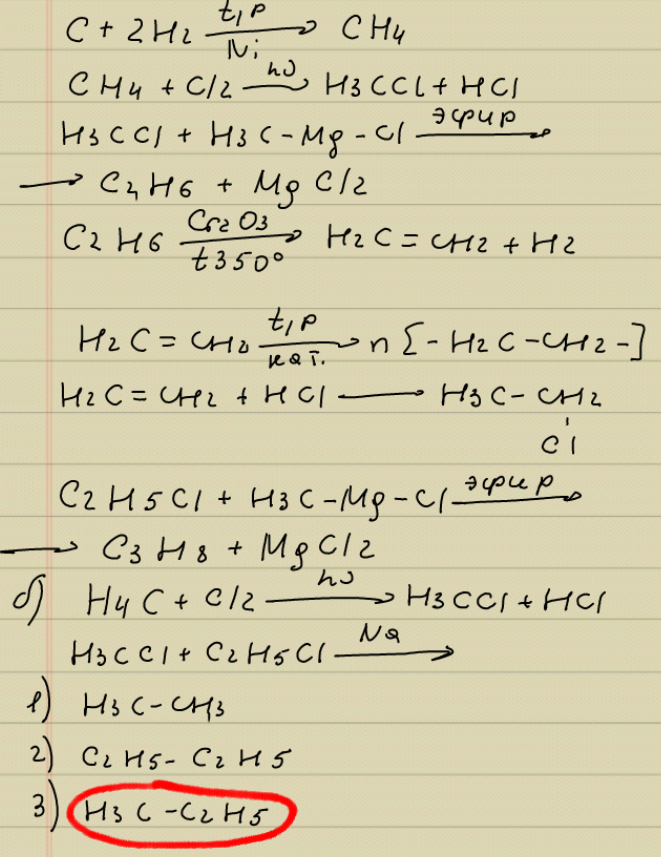 C + 2H2 t,p Ni → CH4
CH4 + Cl2 hυ → H3CCl + HCl
H3CCl + H3C-Mg-Cl эфир →
→ C2H6 + MgCl2
C2H6 Cr2O3 t350° → H2C=CH2 + H2
H2C=CH2 t,p кат. → n[-H2C-CH2-]
H2C=CH2 + HCl → H3C-CH2
Cl
C2H5Cl + H3C-Mg-Cl эфир →
→ C3H8 + MgCl2
б) H4C + Cl2 hυ → H3CCl + HCl
H3CCl + C2H5Cl Na →
1) H3C-CH3
2) C2H5-C2H5
3) H3C-C2H5